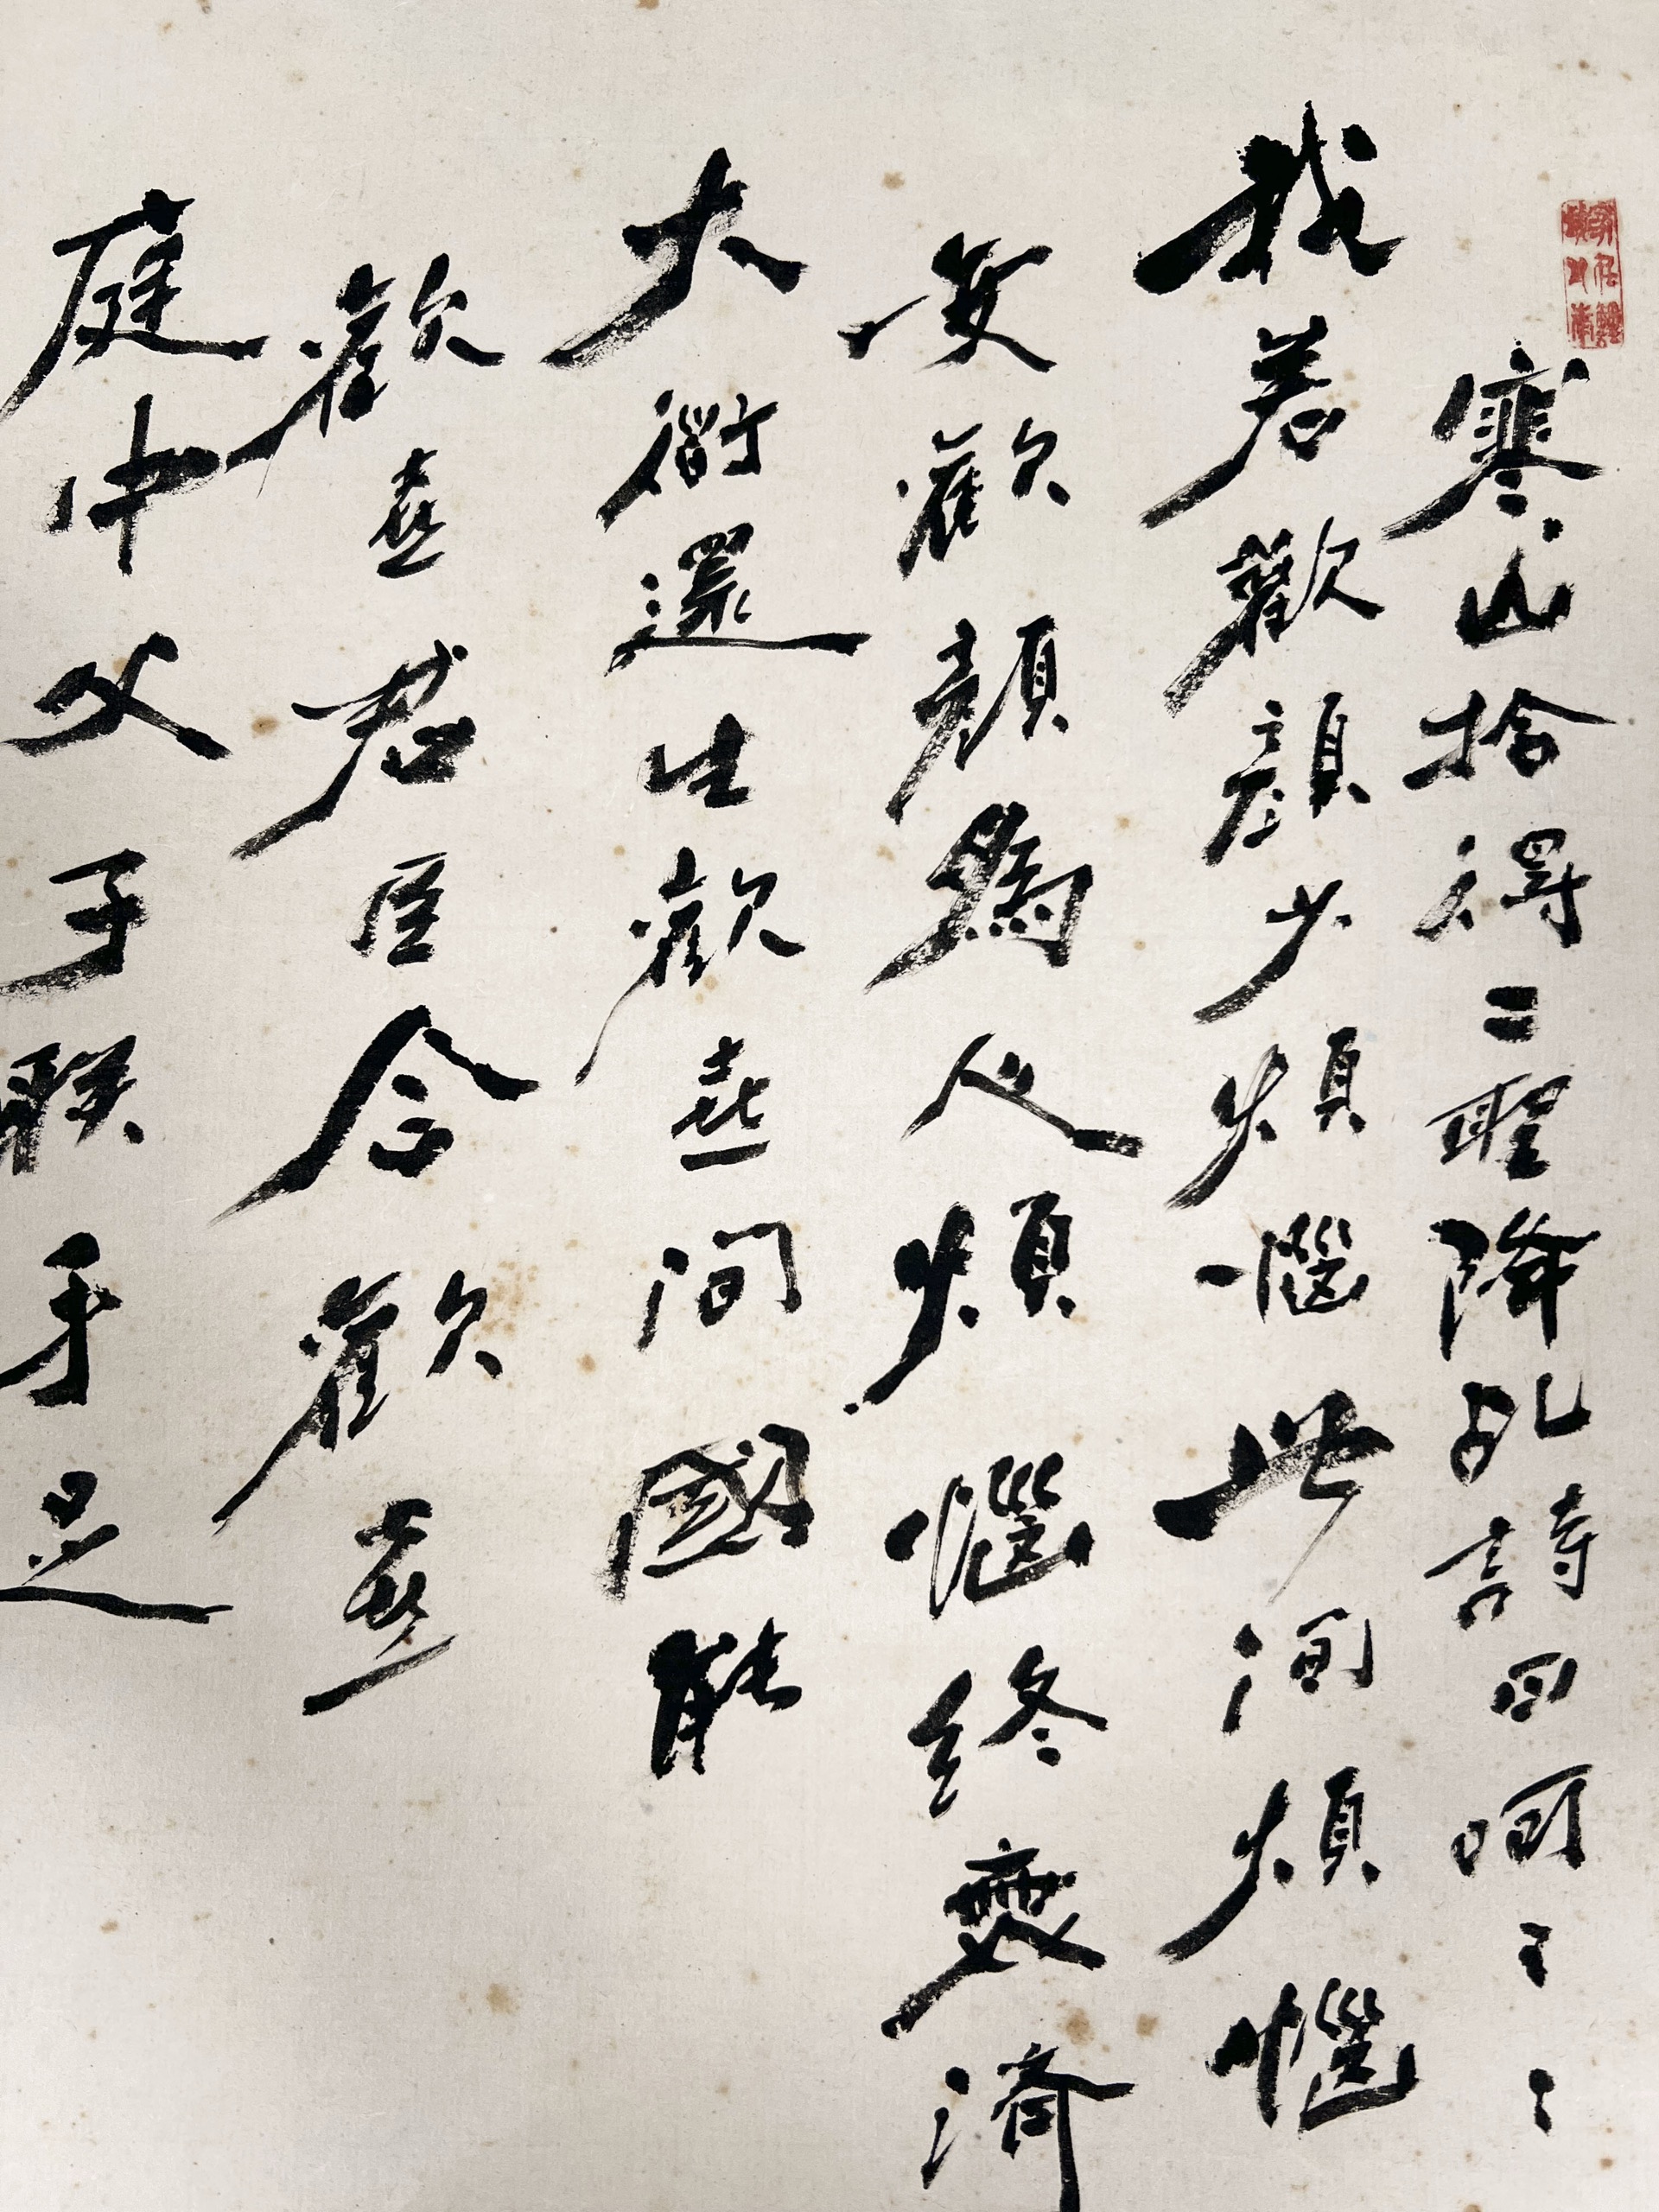 寒山拾得二聖降乩詩曰呵〻〻
我若歡顏少煩惱世間煩惱
變歡顏為人煩惱終無濟
大道還生歡喜間國能
歡喜君臣合歡喜
庭中父子聯手足